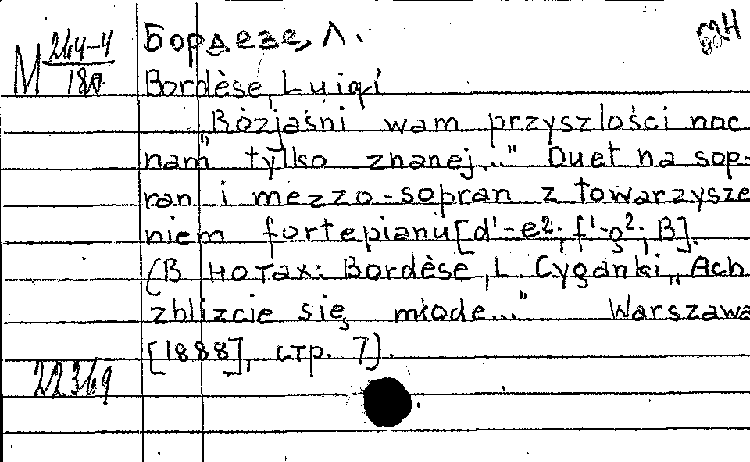 М 264-4/180
Бордезе, Л.
Bordèse, Luigi
„Rozjaśni wam przyszlości noc
nam tylko znanej..." Duet na sop-
ran i mezzo-sopran z towarzysze
niem fortepianu [d'-e²; f'-g²; B].
(В нотах: Bordèse, L. Cyganki „Ach
zblizcie się, młode..." Warszawa
[1888], стр. 7).
22369